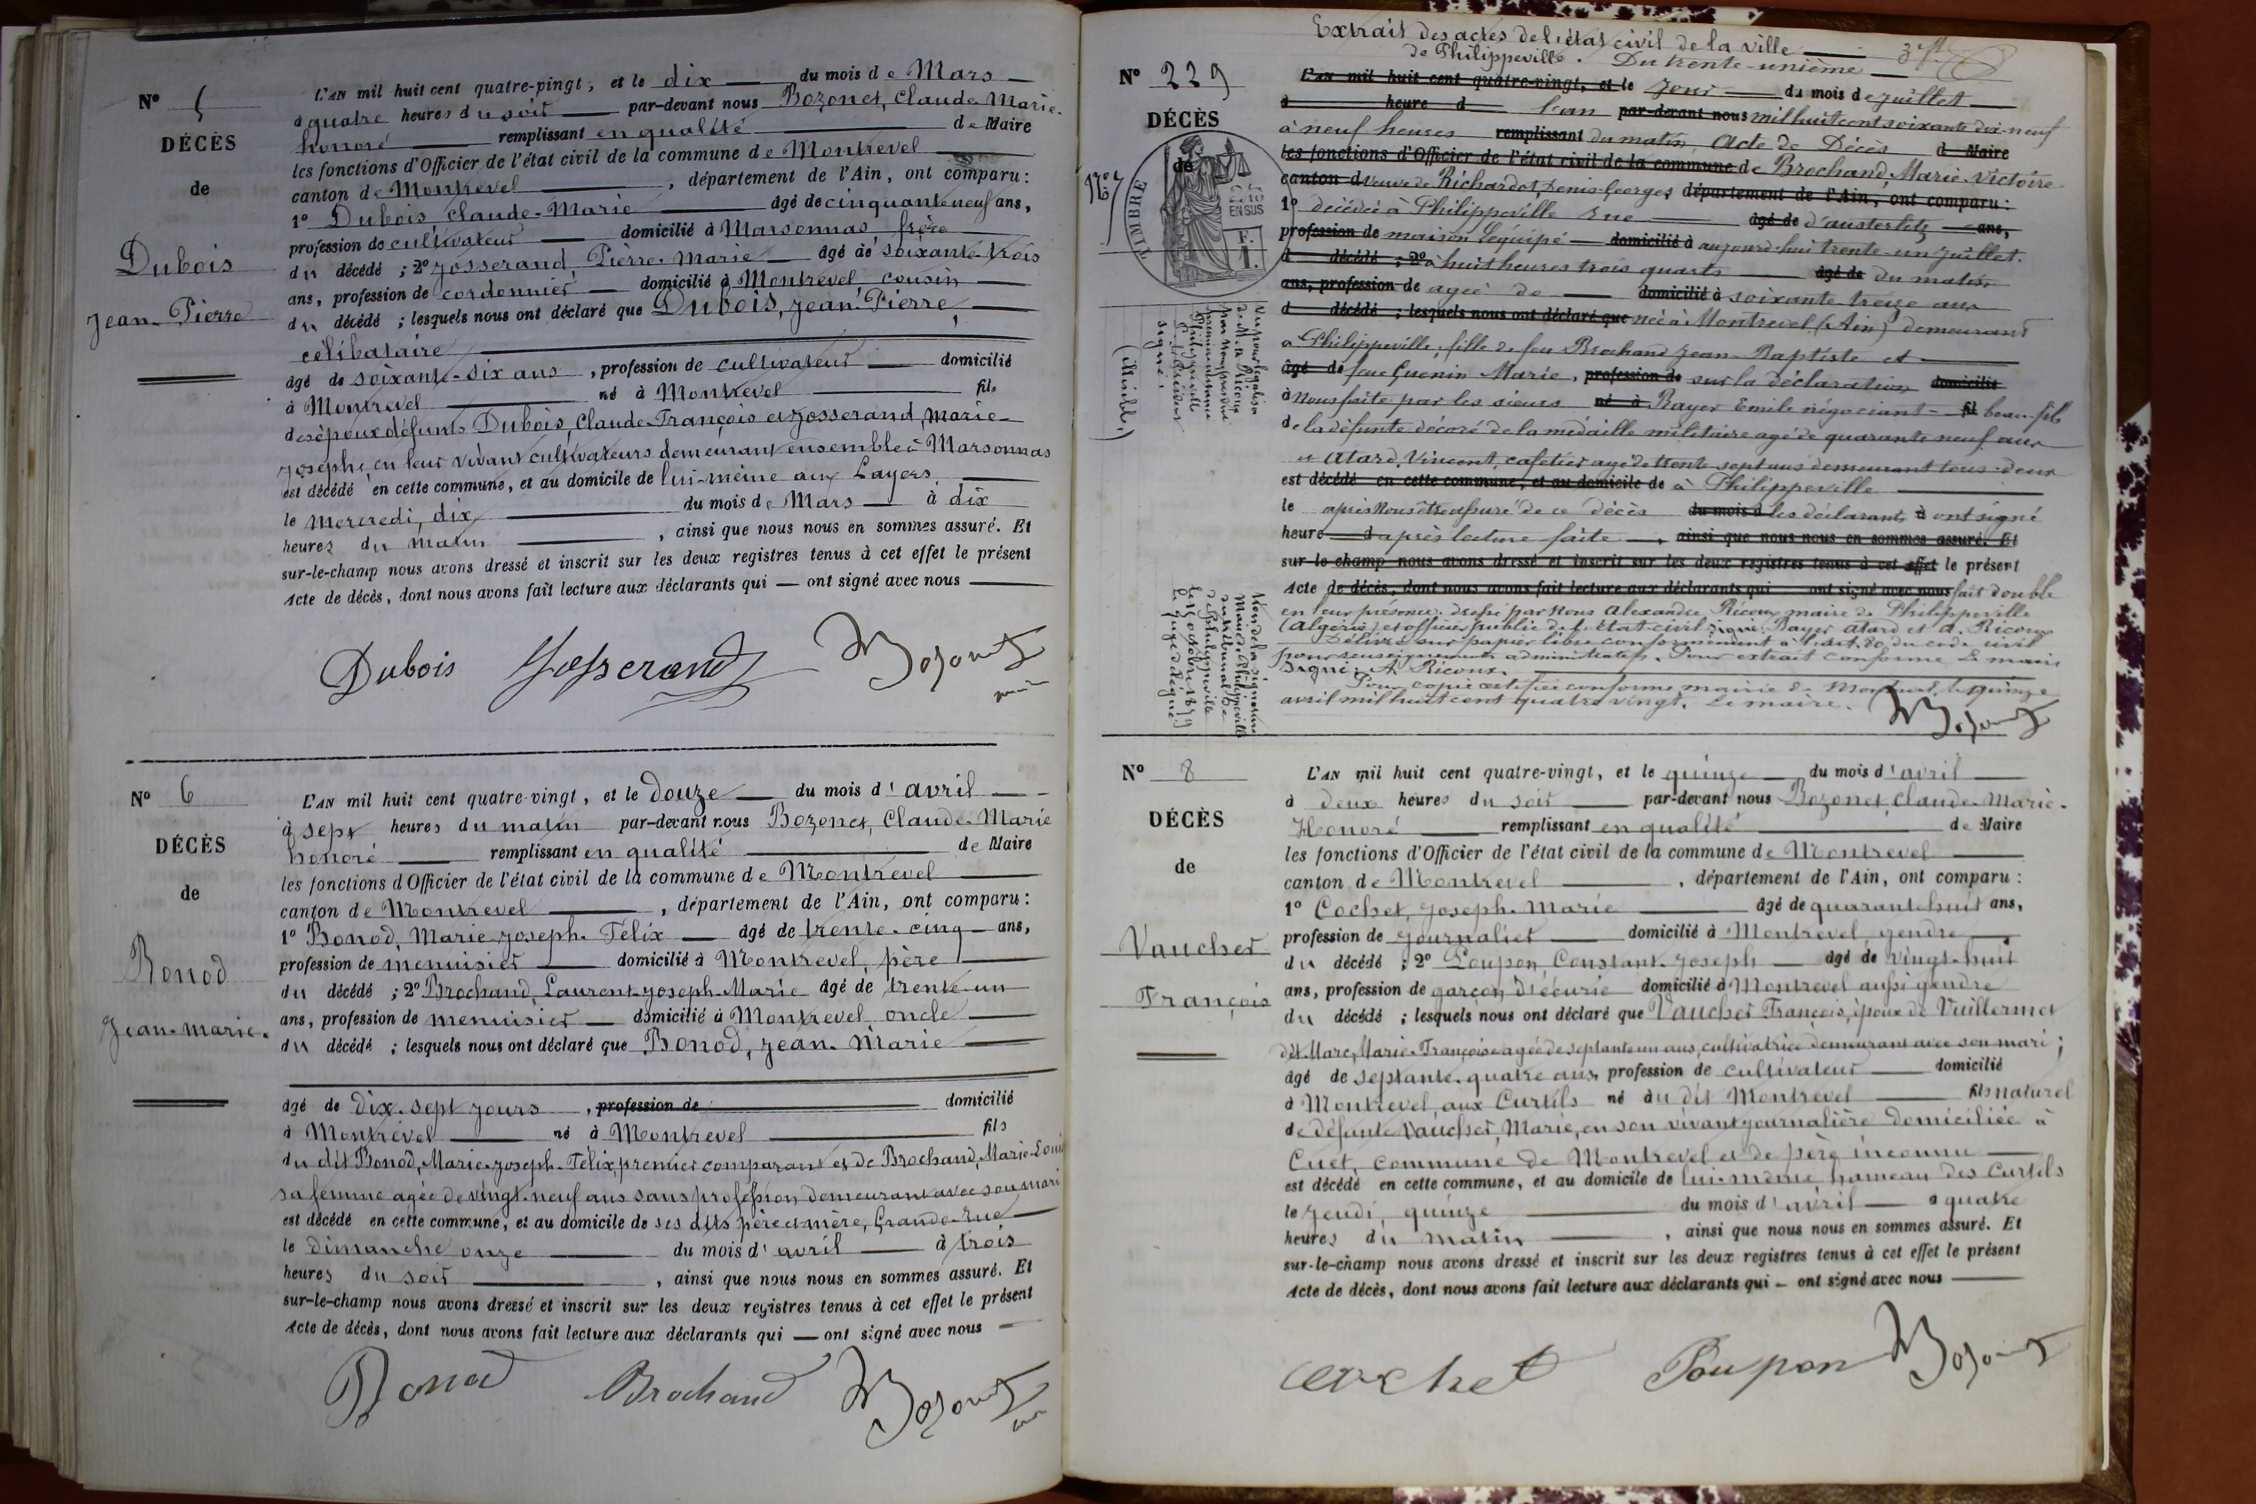 N° 5
DÉCÈS
de
Dubois
Jean-Pierre
L'AN mil huit cent quatre-vingt, et le dix du mois de Mars
à quatre heures du soir par-devant nous Bozonet, Claude-Marie-
honoré remplissant en qualité de Maire
les fonctions d'Officier de l'état civil de la commune de Montrevel
canton de Montrevel, département de l'Ain, ont comparu:
1° Dubois Claude-Marie âgé de cinquante neuf ans,
profession de cultivateur domicilié à Marsonnas frère
du décédé ; 2° Josserand, Pierre-Marie âgé de soixante-trois
ans, profession de cordonnier domicilié à Montrevel cousin
du décédé ; lesquels nous ont déclaré que Dubois, Jean-Pierre,
célibataire
âgé de soixante-six ans, profession de cultivateur domicilié
à Montrevel né à Montrevel fils
des époux défunts Dubois, Claude-François et Josserand, Marie-
Josephe, en leur vivant cultivateurs demeurant ensemble à Marsonnas
est décédé en cette commune, et au domicile de lui-même aux Layers
le Mercredi, dix du mois de Mars à dix
heures du matin, ainsi que nous nous en sommes assuré. Et
sur-le-champ nous avons dressé et inscrit sur les deux registres tenus à cet effet le présent
Acte de décès, dont nous avons fait lecture aux déclarants qui — ont signé avec nous
Dubois Josserand Bozonet
N° 6
DÉCÈS
de
Bonod
Jean-Marie.
L'AN mil huit cent quatre-vingt, et le douze du mois d'avril
à sept heures du matin par-devant nous Bozonet, Claude-Marie
honoré remplissant en qualité de Maire
les fonctions d'Officier de l'état civil de la commune de Montrevel
canton de Montrevel, département de l'Ain, ont comparu:
1° Bonod, Marie-Joseph-Félix âgé de trente-cinq ans,
profession de menuisier domicilié à Montrevel, père
du décédé ; 2° Brochand, Laurent-Joseph-Marie âgé de trente-un
ans, profession de menuisier domicilié à Montrevel oncle
du décédé ; lesquels nous ont déclaré que Bonod, Jean-Marie
âgé de dix-sept jours, profession de domicilié
à Montrevel né à Montrevel fils
du dit Bonod, Marie-Joseph-Félix, premier comparant et de Brochand, Marie-Louise
sa femme agée de vingt-neuf ans sans profession, demeurant avec son mari
est décédé en cette commune, et au domicile de ses dits père et mère, Grande-rue
le dimanche onze du mois d'avril à trois
heures du soir, ainsi que nous nous en sommes assuré. Et
sur-le-champ nous avons dressé et inscrit sur les deux registres tenus à cet effet le présent
Acte de décès, dont nous avons fait lecture aux déclarants qui — ont signé avec nous
Bonod Brochand Bozonet
Extrait des actes de l'état civil de la ville
de Philippeville. Du trente-unième
N° 229
DÉCÈS
de
TIMBRE
L'AN mil huit cent quatre-vingt, et le jour du mois de juillet
à heure d l'an par-devant nous mil huit cent soixante dix-neuf
à neuf heures remplissant du matin, Acte de Décès d Maire
les fonctions d'Officier de l'état civil de la commune de Brochand Marie Victoire
canton d veuve de Richardot, Denis Georges département de l'Ain, ont comparu:
1° décédée à Philippeville rue âgé de d'austerlitz ans,
profession de maison Lequipé domicilié à aujourd'hui trente-un juillet.
d décédé ; 2° à huit heures trois quarts âgé de du matin
ans, profession de agée de domicilié à soixante treize ans
d décédé ; lesquels nous ont déclaré que née à Montrevel (Ain) demeurant
à Philippeville, fille de feu Brochand Jean-Baptiste et
âgé de feue Guenin Marie, profession de sur la déclaration domicilié
à Nous faite par les sieurs né à Bayer Emile négociant fil beau-fils
de la défunte décoré de la médaille militaire agé de quarante neuf ans
et Atard, Vincent, cafetier agé de trente sept ans demeurant tous deux
est décédé en cette commune, et au domicile de à Philippeville
le après Nous être assuré de ce décès du mois d les déclarants à ont signé
heure d après lecture faite, ainsi que nous nous en sommes assuré. Et
sur-le-champ nous avons dressé et inscrit sur les deux registres tenus à cet effet le présent
Acte de décès, dont nous avons fait lecture aux déclarants qui ont signé avec nous fait double
en leur présence. dressé par Nous Alexandre Ricoux maire de Philippeville
(Algérie) et officier public de l'état civil. signé: Bayer Atard et A. Ricoux
Délivré sur papier libre conformément à l'art. 80 du code civil
pour renseignements administratifs. Pour extrait conforme Le maire
Signé: A. Ricoux.
Pour copie certifiée conforme, mairie de Montrevel, le quinze
avril mil huit cent quatre vingt. Le maire. Bozonet
Vu pour légalisation
de M. A. Ricoux
par Nous
Philippeville
signé:
(illisible.)
Vu de la signature
Maire de Philippeville
au tribunal de
Philippeville
le 10 octobre 1879
le juge délégué
N° 8
DÉCÈS
de
Vaucher
François
L'AN mil huit cent quatre-vingt, et le quinze du mois d'avril
à deux heures du soir par-devant nous Bozonet, Claude-Marie-
Honoré remplissant en qualité de Maire
les fonctions d'Officier de l'état civil de la commune de Montrevel
canton de Montrevel, département de l'Ain, ont comparu:
1° Cochet, Joseph-Marie âgé de quarante huit ans,
profession de journalier domicilié à Montrevel gendre
du décédé ; 2° Poupon, Constant-Joseph âgé de vingt-huit
ans, profession de garçon d'écurie domicilié à Montrevel aussi gendre
du décédé ; lesquels nous ont déclaré que Vaucher François, époux de Vuillermet
dit Marc, Marie-Françoise agée de septante un ans, cultivatrice demeurant avec son mari ;
âgé de septante-quatre ans, profession de cultivateur domicilié
à Montrevel, aux Curtils né au dit Montrevel fils naturel
de défunte Vaucher, Marie, en son vivant journalière domiciliée à
Cuet, commune de Montrevel et de père inconnu
est décédé en cette commune, et au domicile de lui-même, hameau des Curtils
le jeudi, quinze du mois d'avril à quatre
heures du matin, ainsi que nous nous en sommes assuré. Et
sur-le-champ nous avons dressé et inscrit sur les deux registres tenus à cet effet le présent
Acte de décès, dont nous avons fait lecture aux déclarants qui — ont signé avec nous
Cochet Poupon Bozonet